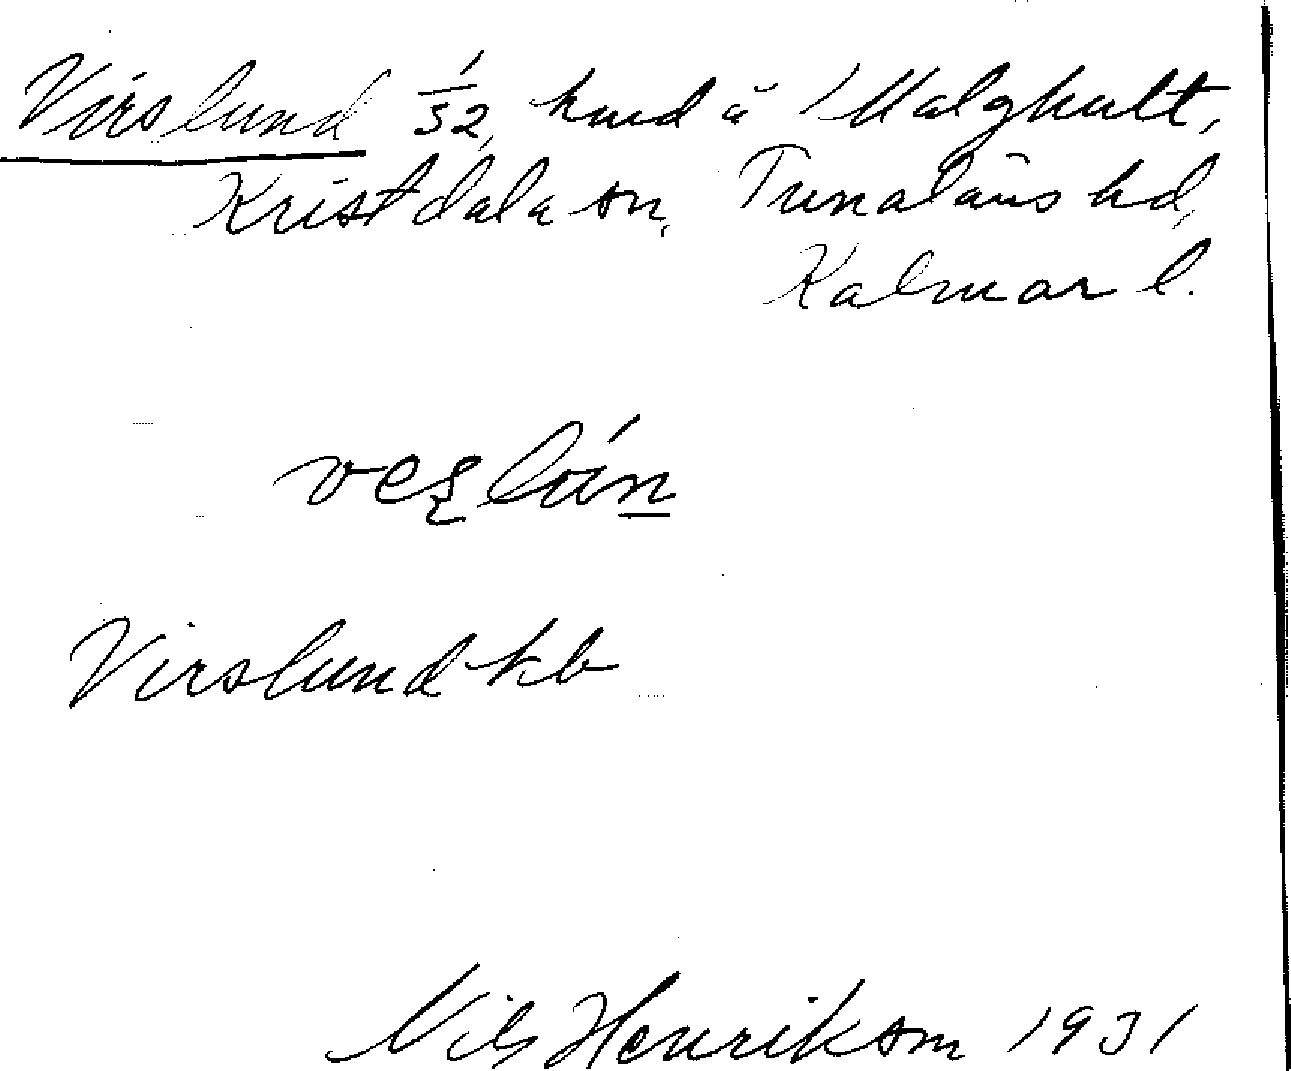 Virslund 1/32, hmd å Malghult,
Kristdala sn, Tunaläns hd,
Kalmar l.
Virslund kb
Nils Henrikson 1931